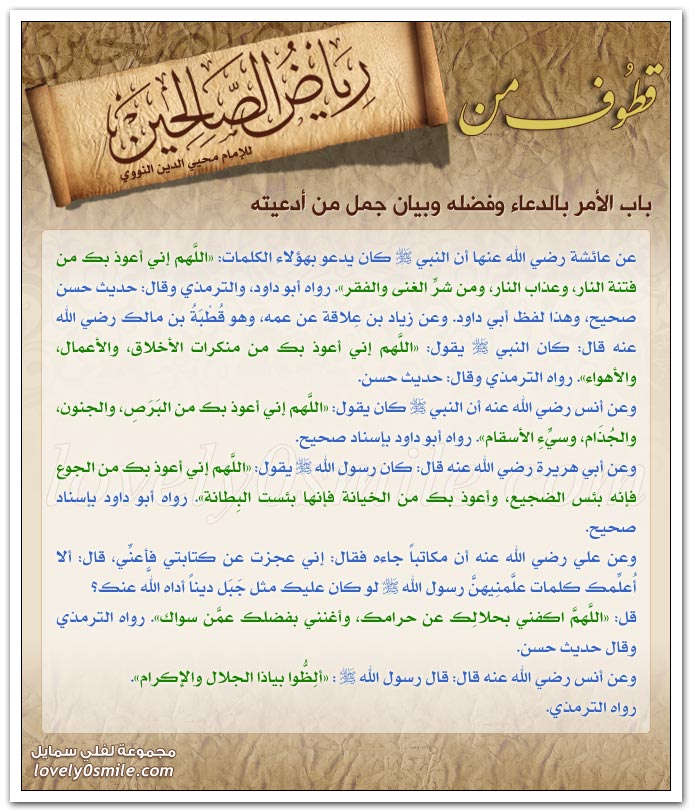 قطوف من
رِيَاضُ الصَّالِحِينَ
للإمام محيي الدين النووي
باب الأمر بالدعاء وفضله وبيان جمل من أدعيته
عن عائشة رضي الله عنها أن النبي ﷺ كان يدعو بهؤلاء الكلمات: «اللَّهم إني أعوذ بك من
فتنة النار، وعذاب النار، ومن شرِّ الغنى والفقر». رواه أبو داود، والترمذي وقال: حديث حسن
صحيح، وهذا لفظ أبي داود. وعن زياد بن عِلاقة عن عمه، وهو قُطْبَةُ بن مالك رضي الله
عنه قال: كان النبي ﷺ يقول: «اللَّهم إني أعوذ بك من منكرات الأخلاق، والأعمال،
والأهواء». رواه الترمذي وقال: حديث حسن.
وعن أنس رضي الله عنه أن النبي ﷺ كان يقول: «اللَّهم إني أعوذ بك من البَرَصِ، والجنون،
والجُذَام، وسيِّءِ الأسقام». رواه أبو داود بإسناد صحيح.
وعن أبي هريرة رضي الله عنه قال: كان رسول الله ﷺ يقول: «اللهم إني أعوذ بك من الجوع
فإنه بئس الضجيع، وأعوذ بك من الخيانة فإنها بئست البِطانة». رواه أبو داود بإسناد
صحيح.
وعن علي رضي الله عنه أن مكاتباً جاءه فقال: إني عجزت عن كتابتي فأعنِّي، قال: ألا
أُعلِّمك كلمات علَّمنِيهنَّ رسول الله ﷺ لو كان عليك مثل جَبَل ديناً أداه الله عنك؟
قل: «اللَّهمَّ اكفني بحلالِك عن حرامك، وأغنني بفضلك عمَّن سواك». رواه الترمذي
وقال حديث حسن.
وعن أنس رضي الله عنه قال: قال رسول الله ﷺ : «ألِظُّوا بياذا الجلال والإكرام».
رواه الترمذي.
lovely0smile.com
مجموعة لفلي سمايل
lovely0smile.com